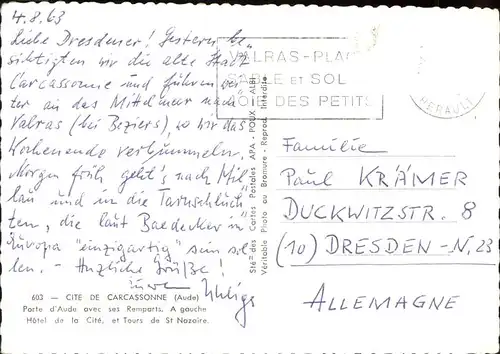 4.8.63
Liebe Dresdner! Gestern be-
sichtigten wir die alte Stadt
Carcassonne und fuhren wei-
ter an das Mittelmeer nach
Valras (bei Beziers), wo wir das
Wochenende verbummeln.
Morgen früh geht's nach Mil-
lau und in die Tarnschluch-
ten, die laut Baedeker in
Europa "einzigartig" sein sol-
len. - Herzliche Grüße!
Eure
603 — CITE DE CARCASSONNE (Aude)
Porte d'Aude avec ses Remparts. A gauche
Hôtel de la Cité, et Tours de St Nazaire.
Sté des Cartes Postales APA - POUX - ALBI
Véritable Photo au Bromure - Reprod. Interdite
VALRAS-PLAGE
SABLE ET SOL
DES PETITS
HERAULT
Familie
Paul KRÄMER
DUCKWITZSTR. 8
(10) DRESDEN-N, 23
ALLEMAGNE